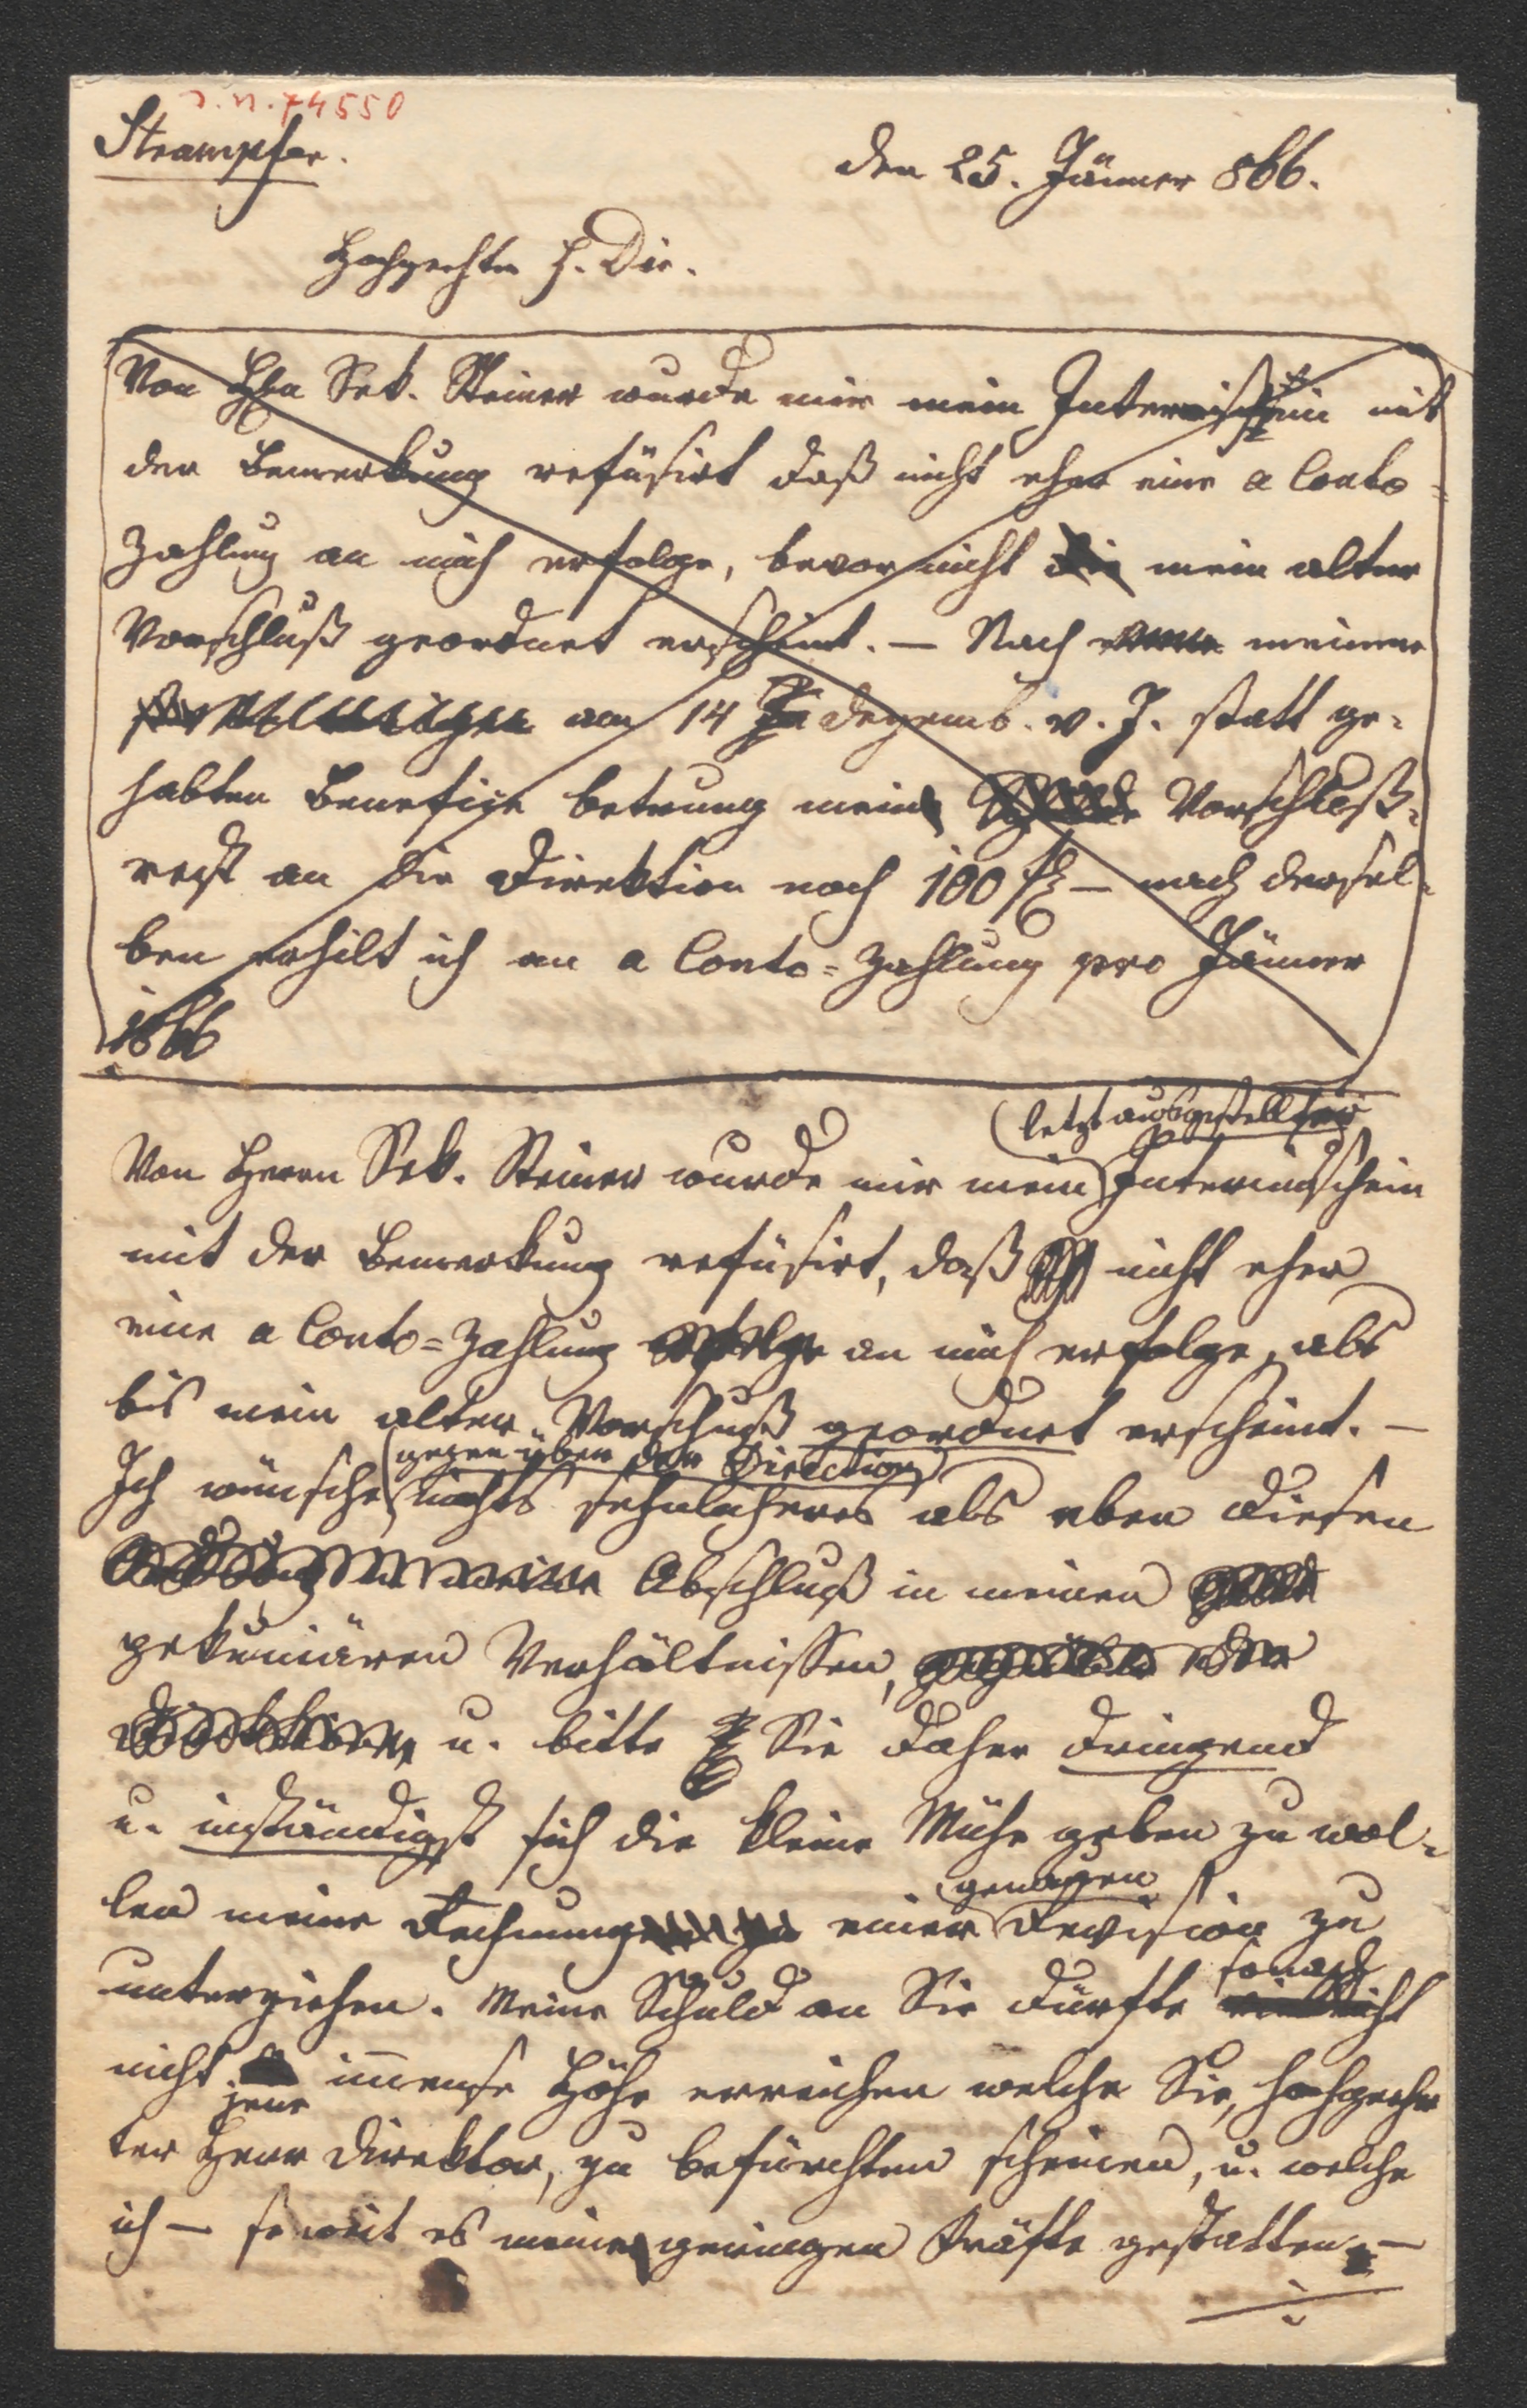 J.N. 74550
Strampfer.
den 25. Jänner 866.
Hochgeehrter H. Dir.
Von Hrn Sek. Steiner wurde mir mein Interimsschein mit
der Bemerkung refüsirt daß nicht eher eine a Conto-
Zahlung an mich erfolge, bevor nicht die mein alter
Vorschluß geordnet erscheint. — Nach meiner
am 14 Dezemb. v. J. statt ge-
habten Benefize betrug mein Vorschluß-
rest an die Direktion noch 100 fl — nach dersel-
ben erhilt ich an a Conto-Zahlung pro Jänner
1866
letzt ausgestellter
Von Herrn Sek. Steiner wurde mir mein Interimsschein
mit der Bemerkung refüsirt, daß nicht eher
eine a Conto=Zahlung erfolge an mich erfolge, als
bis mein alter Vorschuß geordnet erscheint. —
gegenüber der Direction
Ich wünsche nichts sehnlicheres als eben diesen
Abschluß in meinen
pekuniären Verhältnissen,
u. bitte Sie daher dringend
u. inständigst sich die kleine Mühe geben zu wol-
genauen
len meine Rechnung einer Revision zu
sonach
unterziehen. Meine Schuld an Sie dürfte vielleicht
nicht immense Höhe erreichen welche Sie, hochgeehr
jene
ter Herr Direktor, zu befürchten scheinen, u. welche
ich — so weit es meine geringen Kräfte gestatten, —